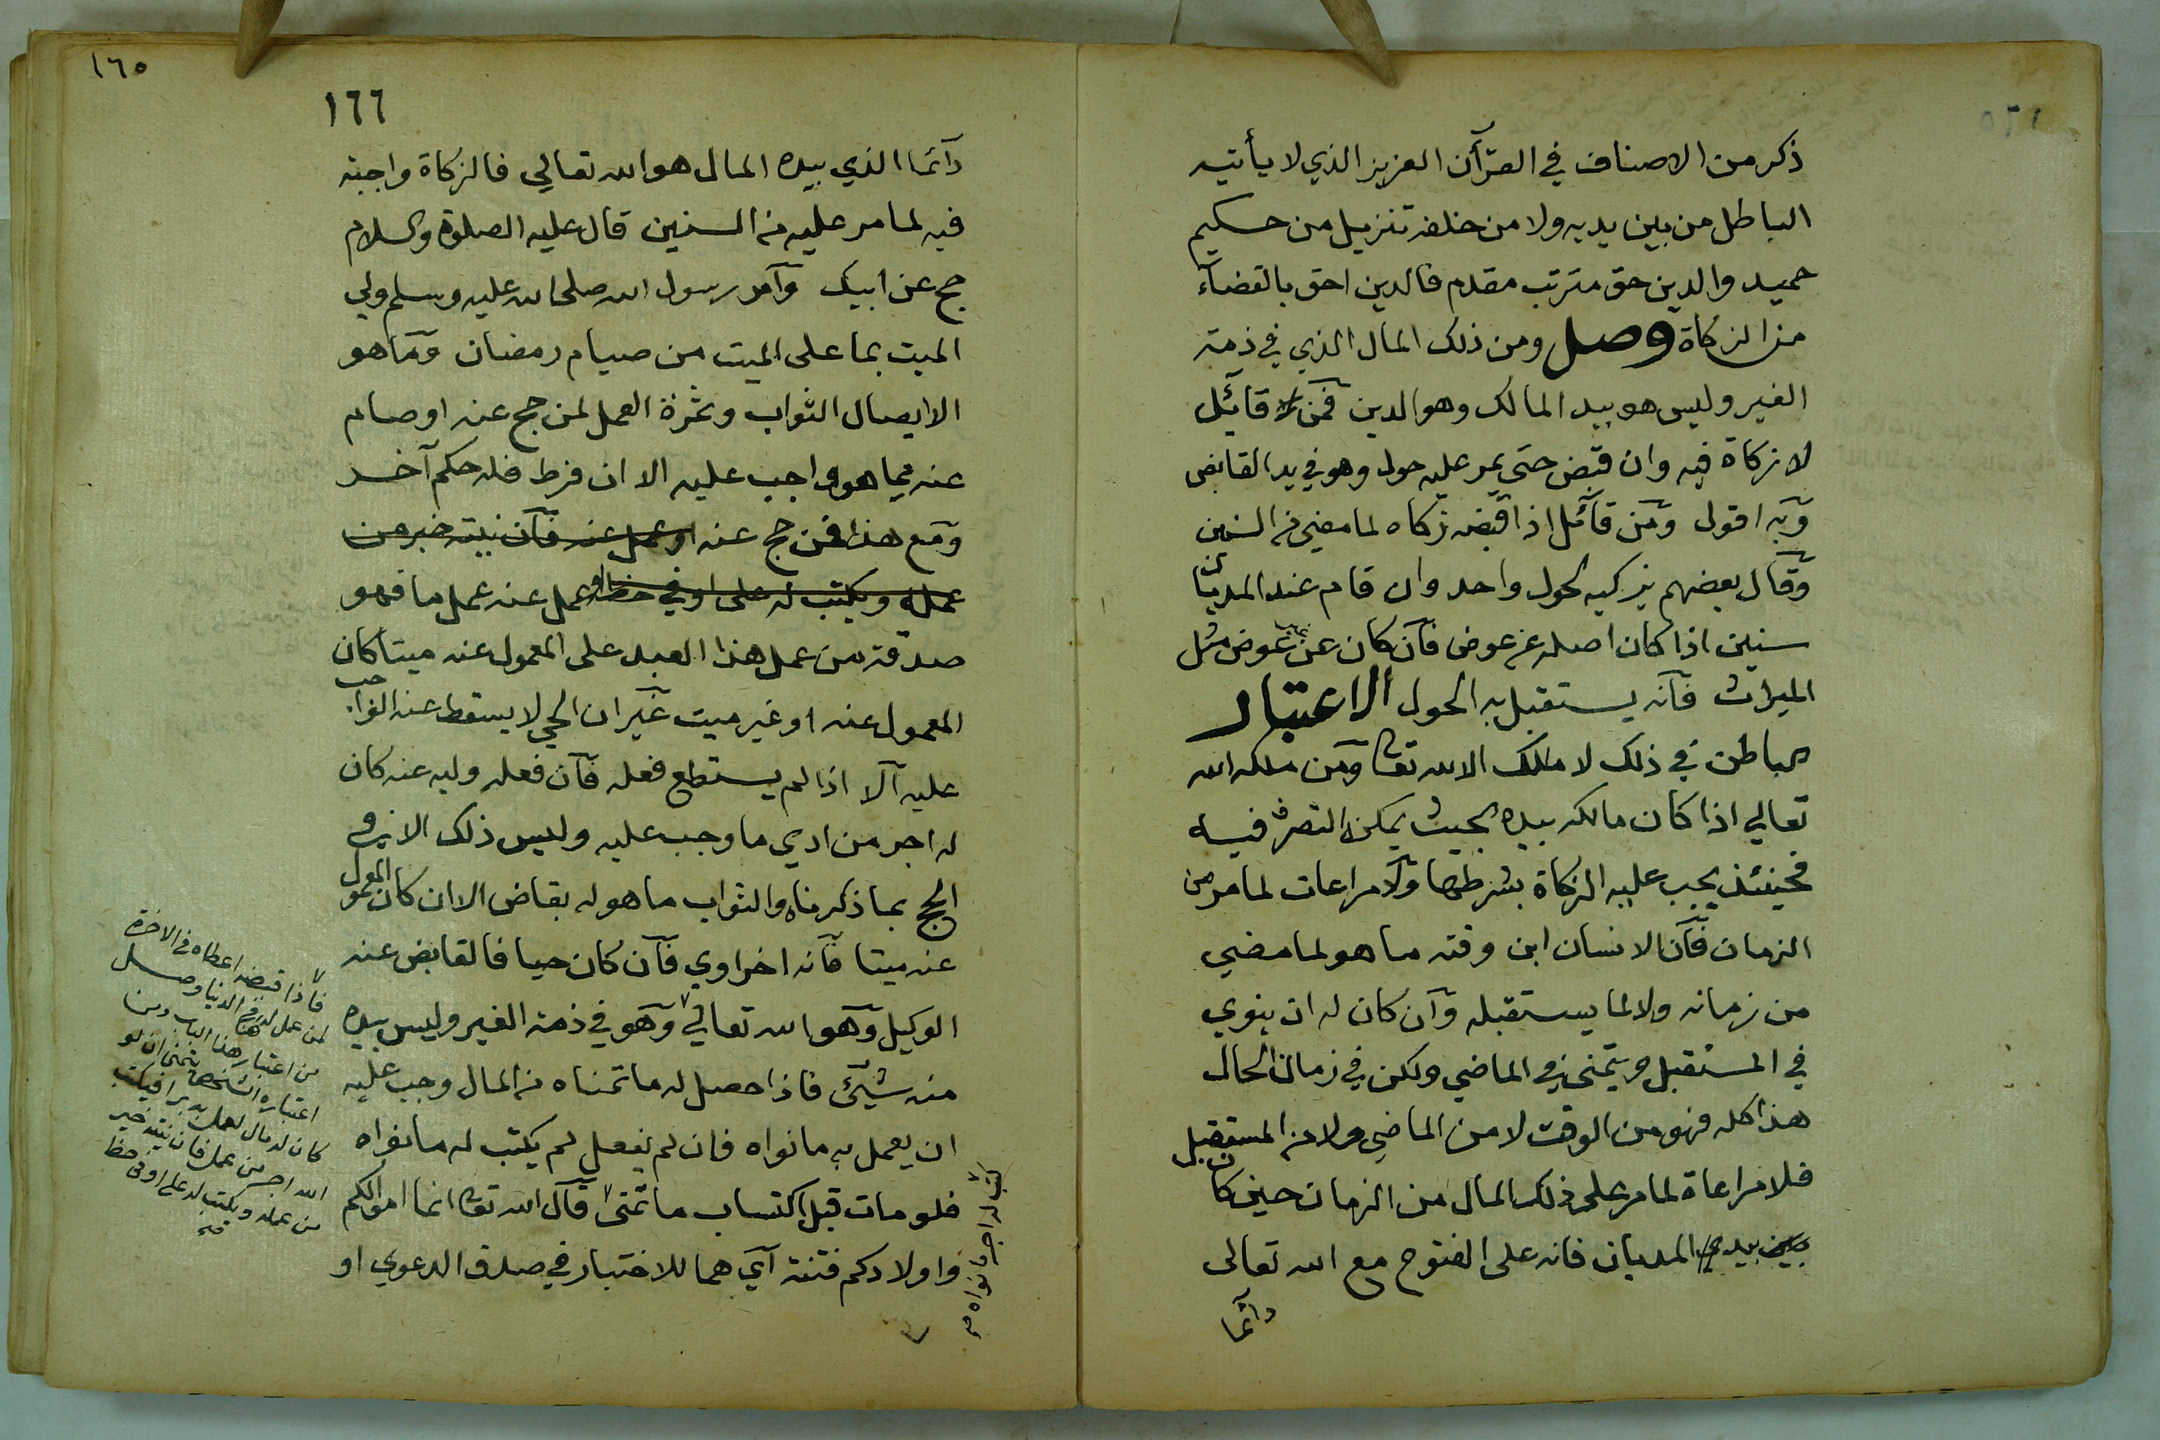 ذكر من الاصناف في القرآن العزيز الذي لا يأتيه
الباطل من بين يديه ولا من خلفه تنزيل من حكيم
حميد والدين حق مترتب مقدم فالدين احق بالقضآء
من الزكاة وصل ومن ذلك المال الذي في ذمة
الغير وليس هو بيد المالك وهو الدين فمن قآئل
لا زكاة فيه وان قبض حتى يمر عليه حول وهو في يد القابض
وبه اقول ومن قآئل اذا قبضه زكاه لما مضى من السنين
وقال بعضهم يزكيه لحول واحد وان قام عند المديان
سنين اذا كان اصله عن عوض فان كان عن غير عوض مثل
الميراث فانه يستقبل به الحول الاعتبار
الباطن في ذلك لا مالك الا الله تعا ومن ملكه الله
تعالي اذا كان مالكه بيده بحيث يمكنه التصرف فيه
فحينئذ يجب عليه الزكاة بشرطها ولا مراعات لما مر من
الزمان فان الانسان ابن وقته ما هو لما مضي
من زمانه ولا لما يستقبله وان كان له ان ينوي
في المستقبل ويتمني في الماضي ولكن في زمان الحال
هذا كله فهو من الوقت لا من الماضي ولا من المستقبل
فلا مراعاة لما مر على ذلك المال من الزمان حين كان
بيد المديان فانه على الفتوح مع الله تعالى
دائما
١٦٥
١٦٦
دآئما الذي بيده المال هو الله تعالي فالزكاة واجبة
فيه لما مر عليه من السنين قال عليه الصلوة والسلام
حج عن ابيك وامر رسول الله صلى الله عليه وسلم ولي
الميت بما على الميت من صيام رمضان وما هو
الا ايصال الثواب وثمرة العمل لمن حج عنه او صام
عنه مما هو واجب عليه الا ان فرط فله حكم آخر
ومع هذا فمن حج عنه او عمل عنه فان نيته خير من
عمله ويكتب له على اوفي حظ او عمل عنه عمل ما فهو
صدقة من عمل هذا العبد على المعمول عنه ميتا كان
المعمول عنه او غير ميت غير ان الحي لا يسقط عنه الواجب
عليه الا اذا لم يستطع فعله فان فعله وليه عنه كان
له اجر من ادي ما وجب عليه وليس ذلك الا في
الحج بما ذكرناه والثواب ما هو له بقاض الا ان كان المعمول
عنه ميتا فانه اخراوي فان كان حيا فالقابض عنه
الوكيل وهو الله تعالي وهو في ذمة الغير وليس بيده
منه شيئ فاذا حصل له ما تمناه من المال وجب عليه
ان يعمل به ما نواه فان لم يفعل لم يكتب له ما نواه
فلو مات قبل اكتساب ما تمنى قال الله تعا انما اموالكم
واولادكم فتنة اي هما للاختبار في صدق الدعوي او
فاذا قبضه اعطاه في الاخرة
لمن عمل له في الدنيا وصل
من اعتبار هذا الباب ومن
اعتباره الشخص يتمنى ان لو
كان له مال لعمل به برا فيكتب
الله اجر من عمل فان نيته خير
من عمله ويكتب له على اوفي حظ
كتب له اجر ما نواه صح